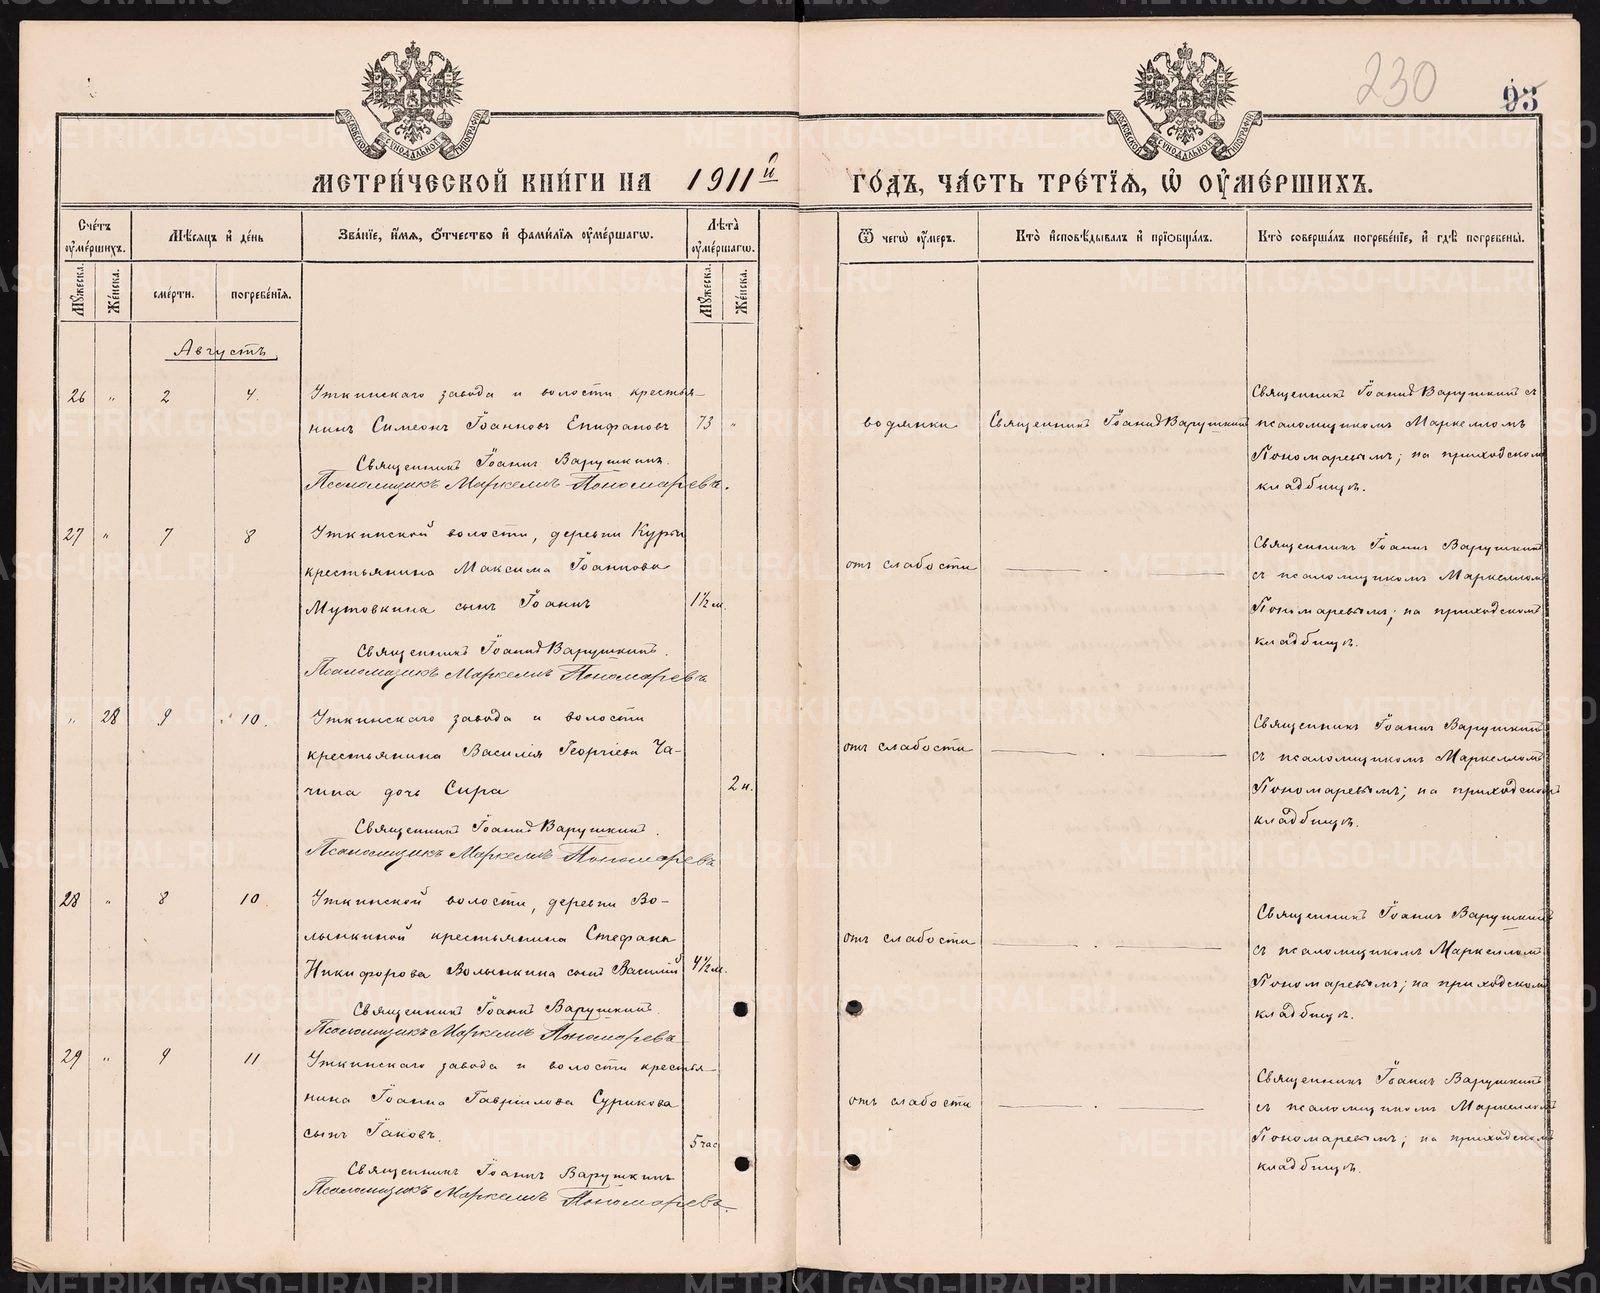 230
95
МЕТРИ́ЧЕСКОЙ КНИ́ГИ НА 1911й ГО́ДЪ, ЧА́СТЬ ТРЕ́ТЇѦ, Ѡ ОУМЕ́РШИХЪ.
Сче́тъ оуме́ршихъ.
Мꙋ́жеска.
Же́нска.
Мѣ́сяцъ и де́нь
сме́рти.
погребе́нїѧ.
Зва́нїе, и́мѧ, о́тчество и фами́лїѧ оуме́ршагѡ.
Лѣ́та оуме́ршагѡ.
Мꙋ́жеска.
Же́нска.
Ѿ чегѡ̀ оу́меръ.
Кто̀ исповѣ́дывалъ и прїѡбща́лъ.
Кто̀ соверша́лъ погребе́нїе, и гдѣ̀ погребены̀.
Августъ
26 „ 2 4. Уткинскаго завода и волости крестья-
нинъ Симеонъ Іоанновъ Епифановъ 73 „
Священникъ Іоаннъ Варушкинъ.
Псаломщикъ Маркеллъ Пономаревъ.
водянки
Священникъ Іоаннъ Варушкинъ
Священникъ Іоаннъ Варушкинъ съ
псаломщикомъ Маркелломъ
Пономаревымъ; на приходскомъ
кладбищѣ.
27 „ 7 8 Уткинской волости, деревни Курьи
крестьянина Максима Іоаннова
Мутовкина сынъ Іоаннъ 1½ м.
Священникъ Іоаннъ Варушкинъ.
Псаломщикъ Маркеллъ Пономаревъ
отъ слабости
Священникъ Іоаннъ Варушкинъ
съ псаломщикомъ Маркелломъ
Пономаревымъ; на приходскомъ
кладбищѣ.
„ 28 9 10. Уткинскаго завода и волости
крестьянина Василія Георгіева Ча-
чина дочь Сира 2 н.
Священникъ Іоаннъ Варушкинъ.
Псаломщикъ Маркеллъ Пономаревъ
отъ слабости
Священникъ Іоаннъ Варушкинъ
съ псаломщикомъ Маркелломъ
Пономаревымъ; на приходскомъ
кладбищѣ.
28 „ 8 10 Уткинской волости, деревни Во-
лынкиной крестьянина Стефана
Никифорова Волынкина сынъ Василій 4½ м.
Священникъ Іоаннъ Варушкинъ.
Псаломщикъ Маркеллъ Пономаревъ
отъ слабости
Священникъ Іоаннъ Варушкинъ
съ псаломщикомъ Маркелломъ
Пономаревымъ; на приходскомъ
кладбищѣ.
29 „ 9 11 Уткинскаго завода и волости крестья-
нина Іоанна Гавріилова Сурикова
сынъ Іаковъ. 5 час
Священникъ Іоаннъ Варушкинъ
Псаломщикъ Маркеллъ Пономаревъ.
отъ слабости
Священникъ Іоаннъ Варушкинъ
съ псаломщикомъ Маркелломъ
Пономаревымъ; на приходскомъ
кладбищѣ.
METRIKI.GASO-URAL.RU